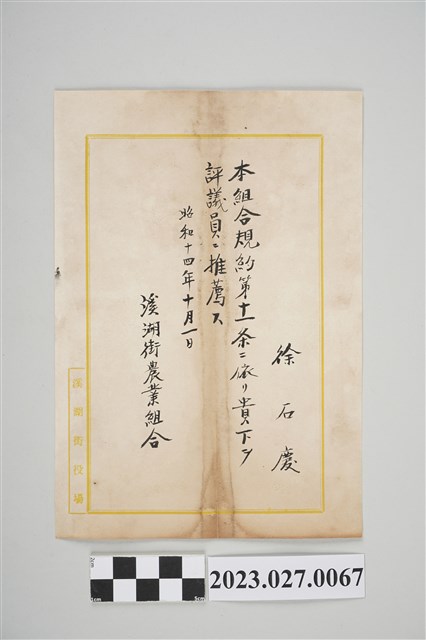 徐石慶
本組合規約第十一条ニ依リ貴下ヲ
評議員ニ推薦ス
昭和十四年十月一日
溪湖街農業組合
溪湖街役場
2cm
1cm
5cm
2023.027.0067